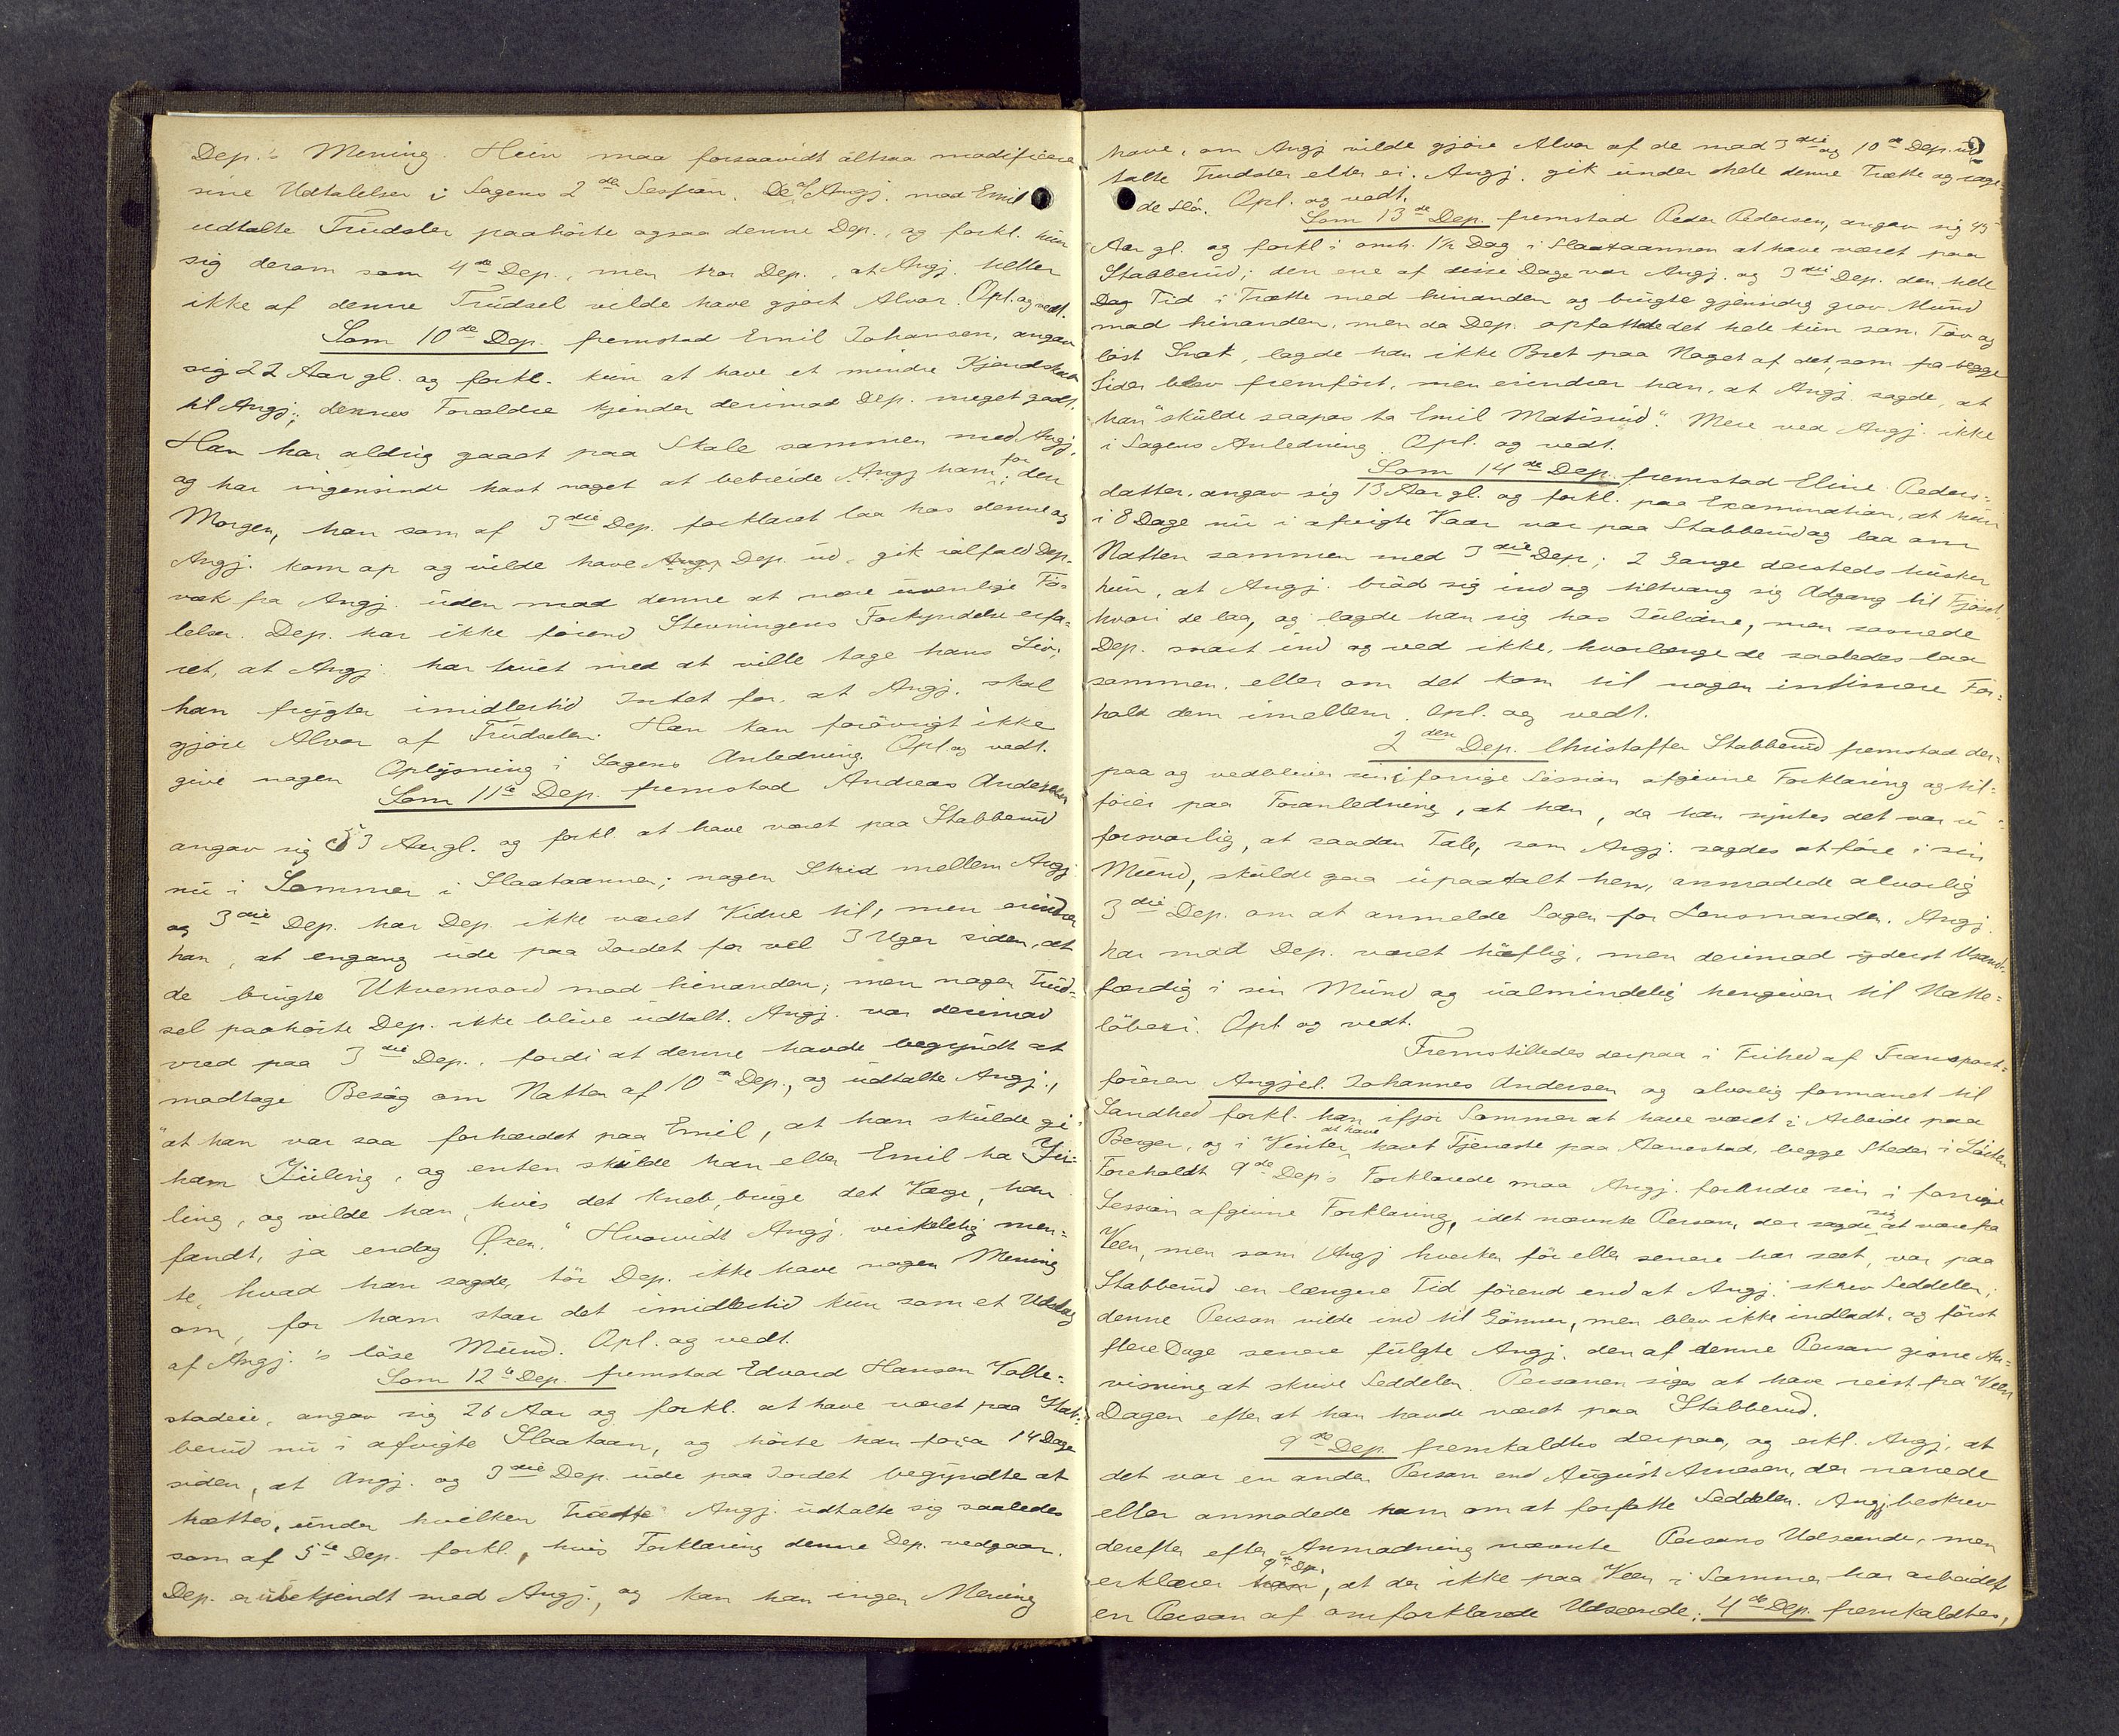 Dep.'s Mening. Hun maa forsaavidt altsaa modificere
sine Udtalelser i Sagens 2den Session. De af Angj. mod Emil
udtalte Trudsler paahörte ogsaa denne Dep., og forkl. hun
sig derom som 4de Dep., men tror Dep., at Angj. heller
ikke af denne Trudsel vilde have gjort Alvor. Opl. og vedt.
Som 10de Dep. fremstod Emil Johansen, angav
sig 22 Aar gl. og forkl. kun at have et mindre Kjendskab
til Angj.; dennes Forældre kjender derimod Dep. meget godt.
Han har aldrig gaaet paa Skole sammen med Angj.
og har ingensinde havt noget at bebreide Angj ham for; den
Morgen, han som af 3die Dep. forklaret laa hos denne og
Angj. kom op og vilde have Dep. ud, gik ialfald Dep.
væk fra Angj. uden mod denne at nære uvenlige Fö-
lelser. Dep. har ikke förend Stevningens Forkyndelse erfa-
ret, at Angj. har truet med at ville tage hans Liv;
han frygter imidlertid Intet for, at Angj. skal
gjöre Alvor af Trudselen. Han kan forövrigt ikke
give nogen Oplysning i Sagens Anledning. Opl. og vedt.
Som 11te Dep. fremstod Andreas Andersen
angav sig 53 Aar gl. og forkl. at have været paa Stabberud
nu i Sommer i Slaataannen; nogen Strid mellem Angj
og 3die Dep. har Dep. ikke været Vidne til, men erindrer
han, at engang ude paa Jordet for vel 3 Uger siden, at
de brugte Ukvemsord mod hinanden; men nogen Trud-
sel paahörte Dep. ikke blive udtalt. Angj. var derimod
vred paa 3die Dep., fordi at denne havde begyndt at
modtage Besög om Natten af 10de Dep., og udtalte Angj.,
"at han var saa forhærdet paa Emil, at han skulde gi
ham Juling, og enten skulde han eller Emil ha Ju-
ling, og vilde han, hvis det kneb, bruge det Værge, han
fandt, ja endog Öxen." Hvorvidt Angj. virkelig men-
te, hvad han sagde, tör Dep. ikke have nogen Mening
om, for ham staar det imidlertid kun som et Udslag
af Angj.'s löse Mund. Opl. og vedt.
Som 12te Dep. fremstod Edvard Hansen Volle-
stadeie, angav sig 26 Aar og forkl. at have været paa Stab-
berud nu i afvigte Slaataan, og hörte han for ca 14 Dage
siden, at Angj. og 3die Dep. ude paa Jordet begyndte at
trættes, under hvilken Trætte Angj. udtalte sig saaledes
som af 5te Dep. forkl., hvis Forklaring denne Dep. vedgaar.
Dep. er ubekjendt med Angj., og kan han ingen Mening
have, om Angj vilde gjöre Alvor af de mod 3die og 10de Dep. ud
talte Trudsler eller ei. Angj. gik under hele denne Trætte og rage-
de slo. Opl. og vedt.
Som 13de Dep. fremstod Peder Pedersen, angav sig 43
Aar gl. og forkl: omtr. 1½ Dag i Slaataannen at have været paa
Stabberud; den ene af disse Dage var Angj. og 3die Dep. den hele
Dag Tid i Trætte med hinanden og brugte gjensidig grov Mund
mod hinanden, men da Dep. opfattede det hele kun som Töv og
löst Snak, lagde han ikke Bret paa Noget af det, som fra begge
Sider blev fremfört, men erindrer han, at Angj. sagde, at
han "skulde saapas ta Emil Matisrud". Mere ved Angj. ikke
i Sagens Anledning. Opl. og vedt.
Som 14de Dep. fremstod Eline Peders-
datter, angav sig 13 Aar gl. og forkl. paa Examination, at hun
i 8 Dage nu i afvigte Vaar var paa Stabberud og laa om
Natten sammen med 3die Dep.; 2 Gange dersteds husker
hun, at Angj. bröd sig ind og tiltvang sig Adgang til Fjöset,
hvori de laa, og lagde han sig hos Juliane, men sovnede
Dep. snart ind og ved ikke, hvorlænge de saaledes laa
sammen, eller om det kom til nogen intimere For-
hold dem imellem. Opl. og vedt.
2den Dep. Christoffer Stabberud fremstod der-
paa og vedbliver sin i forrige Session afgivne Forklaring og til-
föier paa Foranledning, at han, da han syntes det var u-
forsvarlig, at saadan Tale, som Angj. sagdes at före i sin
Mund, skulde gaa upaatalt hen, anmodede alvorlig
3die Dep. om at anmelde Sagen for Lensmanden. Angj.
har mod Dep. været höflig, men derimod yderst Usand-
færdig i sin Mund og ualmindelig hengiven til Natte-
löberi. Opl. og vedt.
Fremstilledes derpaa i Frihed af Transport-
föreren Angjel. Johannes Andersen og alvorlig formanet til
Sandhed forkl. han ifjor Sommer at have været i Arbeide paa
Berger, og i Vinter at have havt Tjeneste paa Aanestad, begge Steder i Löiten
Foreholdt 9de Dep's Forklarede maa Angj. forandre sin i forrige
Session afgivne Forklaring, idet nævnte Person, der sagde sig at være fra
Veen, men som Angj hverken för eller senere har seet, var paa
Stabberud en længere Tid förend end at Angj. skrev Seddelen;
denne Person vilde ind til Gönner, men blev ikke indladt, og först
flere Dage senere fulgte Angj. den af denne Person givne An-
visning at skrive Seddelen. Personen siges at have reist fra Veen
Dagen efter at han havde været paa Stabberud.
9de Dep. fremkaldtes derpaa, og erkl. Angj. at
det var en anden Person end August Arnesen, der narrede
eller anmodede ham om at forfatte Seddelen. Angj. beskrev
derefter efter Anmodning nævnte Persons Udseende, men
erklærer 9de Dp., at der ikke paa Veen i Sommer har arbeidet
en Person af omforklarede Udseende; 4de Dep. fremkaldtes,